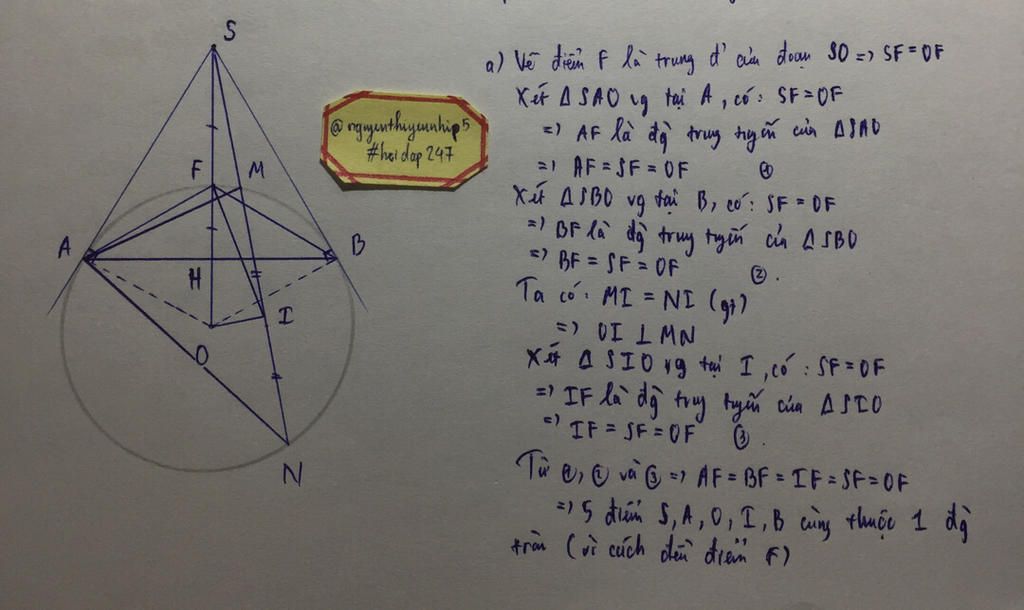 S
F
M
A
B
H
I
O
N
@nguyenthuyennhip5
#hoidap247
a) Vẽ điểm F là trung đ' của đoạn SO => SF = OF
Xét ΔSAO vg tại A, có: SF = OF
=> AF là đg truy tuyến của ΔSAO
=> AF = SF = OF ①
Xét ΔSBO vg tại B, có: SF = OF
=> BF là đg truy tuyến của ΔSBO
=> BF = SF = OF ②.
Ta có: MI = NI (gt)
=> OI ⊥ MN
Xét ΔSIO vg tại I, có: SF = OF
=> IF là đg truy tuyến của ΔSIO
=> IF = SF = OF ③.
Từ ①, ② và ③ => AF = BF = IF = SF = OF
=> 5 điểm S, A, O, I, B cùng thuộc 1 đg
tròn (vì cách đều điểm F)